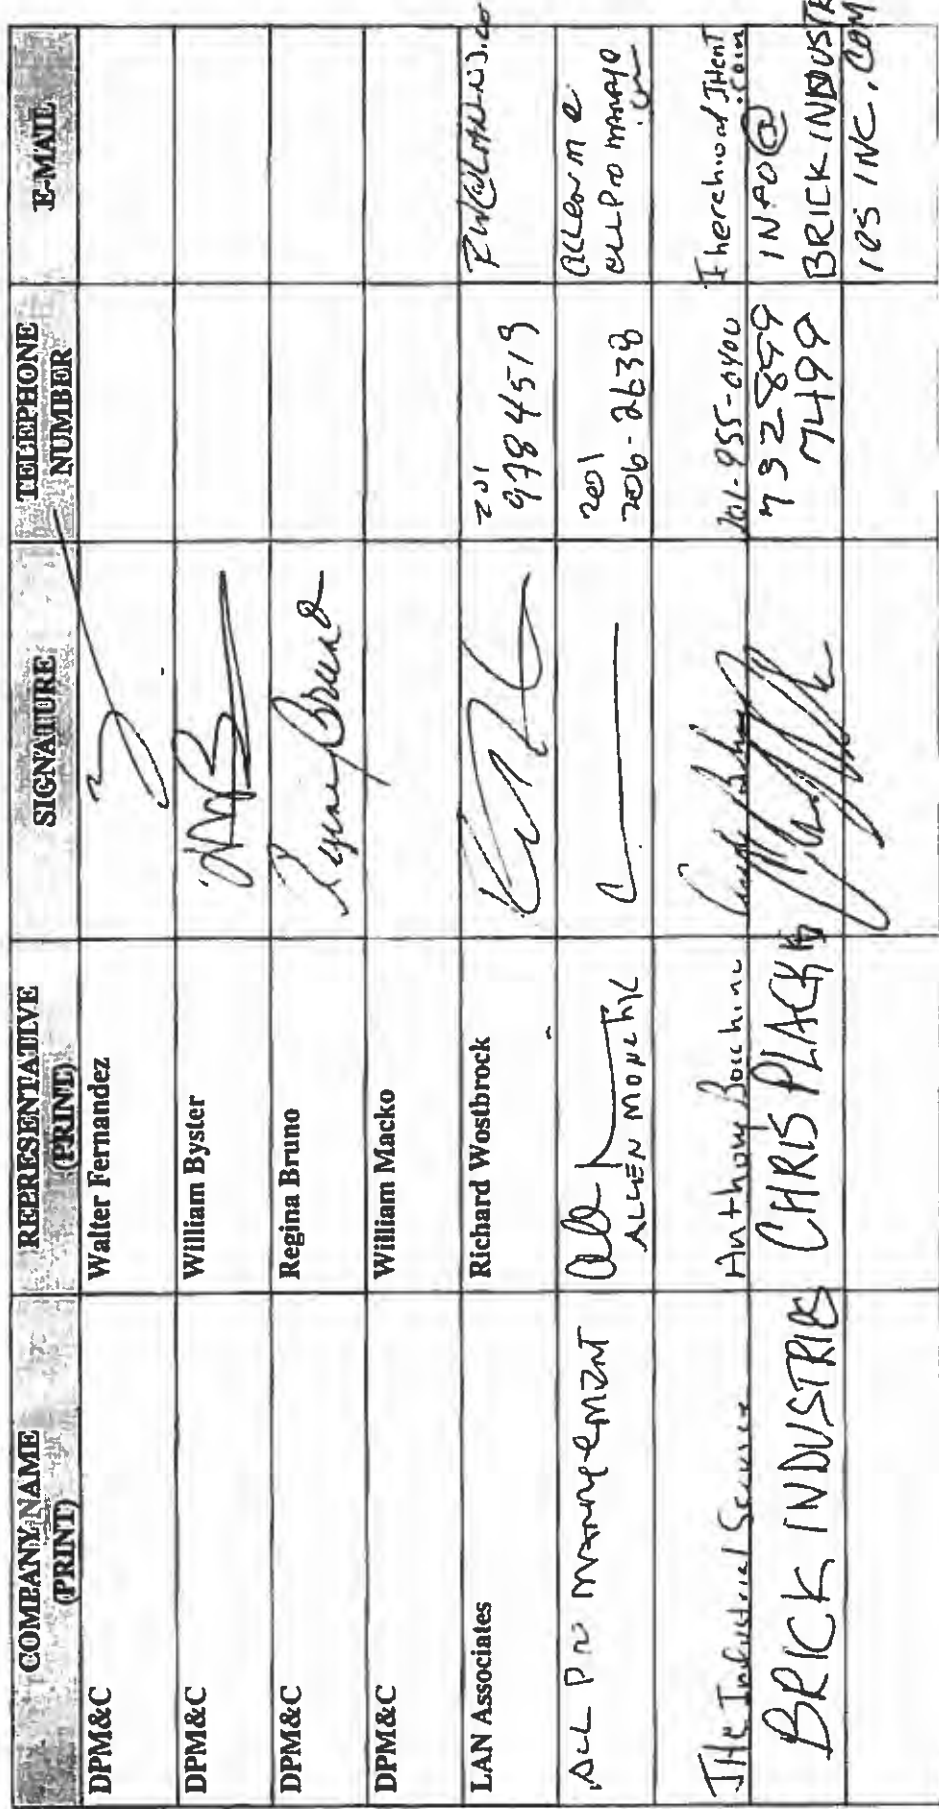 COMPANY NAME (PRINT) REPRESENTATIVE (PRINT) SIGNATURE TELEPHONE NUMBER E-MAIL
DPM&C Walter Fernandez
DPM&C William Byster
DPM&C Regina Bruno
DPM&C William Macko
LAN Associates Richard Wostbrock 201 978 4519
ALL Pro management ALLEN 201 706-2638 allen m @ allpromanage
The Industrial Anthony 201-955-0400
BRICK INDUSTRIES CHRIS PLACK 732 899 7499 INFO@ BRICKINDUSTR IES INC.COM